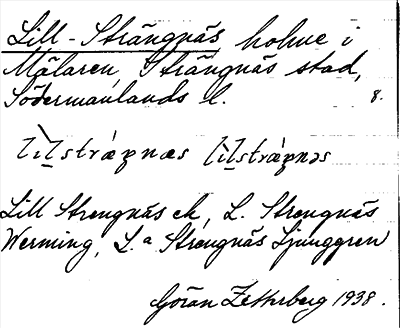 Lill-Strängnäs holme i
Mälaren, Strängnäs stad,
Södermanlands l. 8.
lìl̲stráŋnæs lìl̲stráŋnəs
Lill Strengnäs ek, L. Strengnäs
Werming, L.a Strengnäs Ljunggren
Göran Zetterberg 1938.